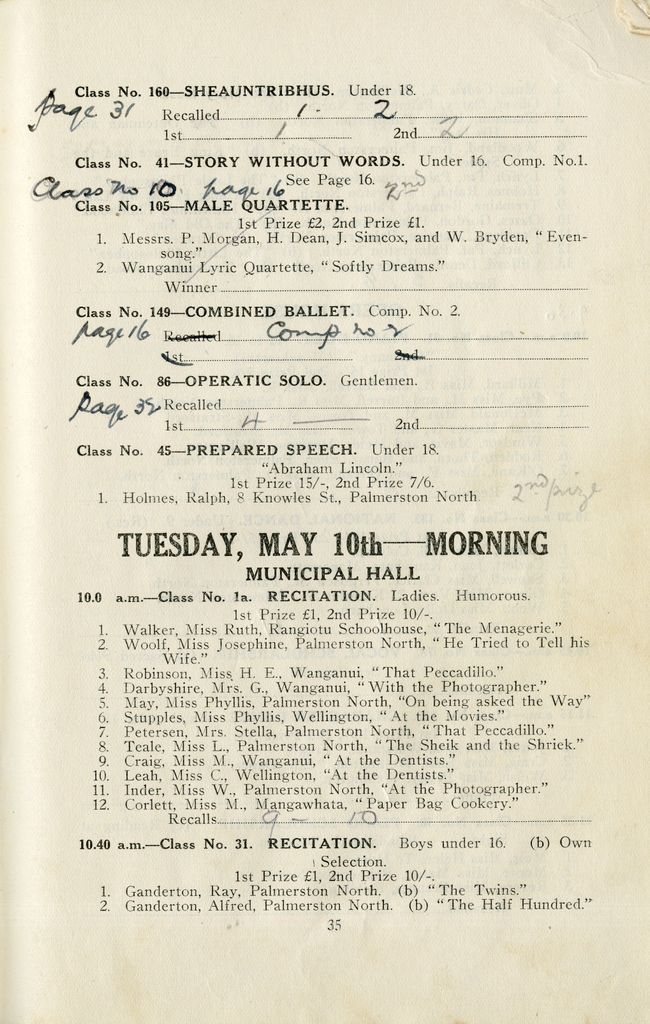 Class No. 160—SHEAUNTRIBHUS. Under 18.
page 31 Recalled 1 · 2
1st 1 2nd 2
Class No. 41—STORY WITHOUT WORDS. Under 16. Comp. No.1.
See Page 16.
Class no 10 page 16 2nd
Class No. 105—MALE QUARTETTE.
1st Prize £2, 2nd Prize £1.
1. Messrs. P. Morgan, H. Dean, J. Simcox, and W. Bryden, “Even-
song.”
2. Wanganui Lyric Quartette, “Softly Dreams.”
Winner
Class No. 149—COMBINED BALLET. Comp. No. 2.
page 16 Recalled Comp no 2
1st 2nd
Class No. 86—OPERATIC SOLO. Gentlemen.
Page 32 Recalled
1st 4 — 2nd
Class No. 45—PREPARED SPEECH. Under 18.
“Abraham Lincoln.”
1st Prize 15/-, 2nd Prize 7/6.
1. Holmes, Ralph, 8 Knowles St., Palmerston North 2nd prize
TUESDAY, MAY 10th—MORNING
MUNICIPAL HALL
10.0 a.m.—Class No. 1a. RECITATION. Ladies. Humorous.
1st Prize £1, 2nd Prize 10/-.
1. Walker, Miss Ruth, Rangiotu Schoolhouse, “The Menagerie.”
2. Woolf, Miss Josephine, Palmerston North, “He Tried to Tell his
Wife.”
3. Robinson, Miss H. E., Wanganui, “That Peccadillo.”
4. Darbyshire, Mrs. G., Wanganui, “With the Photographer.”
5. May, Miss Phyllis, Palmerston North, “On being asked the Way”
6. Stupples, Miss Phyllis, Wellington, “At the Movies.”
7. Petersen, Mrs. Stella, Palmerston North, “That Peccadillo.”
8. Teale, Miss L., Palmerston North, “The Sheik and the Shriek.”
9. Craig, Miss M., Wanganui, “At the Dentists.”
10. Leah, Miss C., Wellington, “At the Dentists.”
11. Inder, Miss W., Palmerston North, “At the Photographer.”
12. Corlett, Miss M., Mangawhata, “Paper Bag Cookery.”
Recalls 9 – 10
10.40 a.m.—Class No. 31. RECITATION. Boys under 16. (b) Own
Selection.
1st Prize £1, 2nd Prize 10/-.
1. Ganderton, Ray, Palmerston North. (b) “The Twins.”
2. Ganderton, Alfred, Palmerston North. (b) “The Half Hundred.”
35